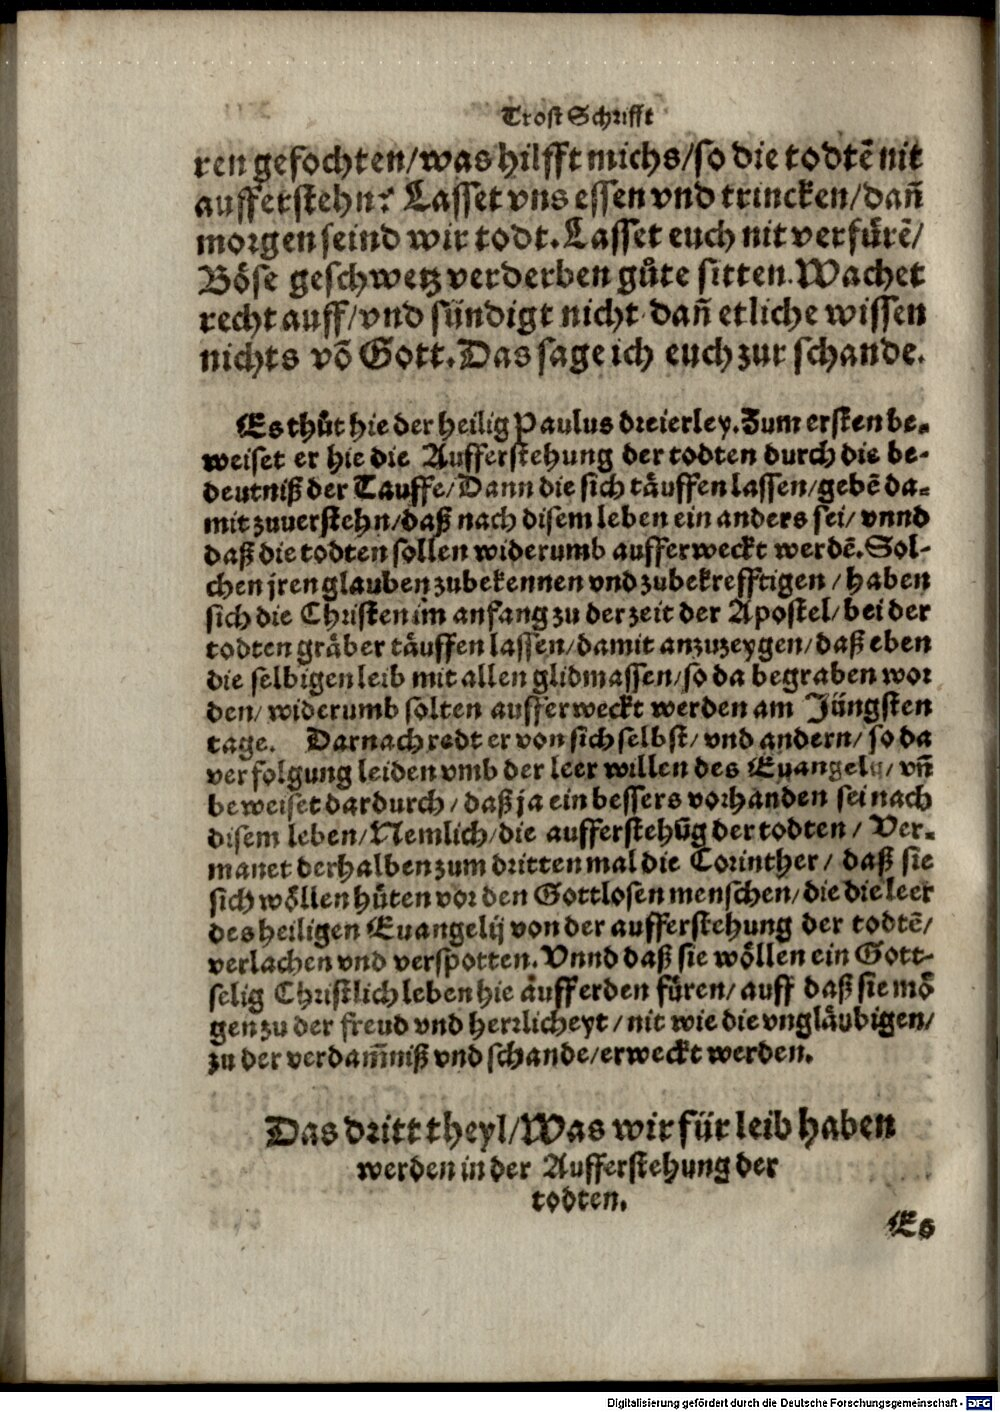 Trost Schrifft
ren gefochten/was hilfft michs/so die todtẽ nit
aufferstehn? Lasset vns essen vnd trincken/dañ
morgen seind wir todt. Lasset euch nit verfůrẽ/
Böse geschwetz verderben gůte sitten. Wachet
recht auff/vnd sündigt nicht dañ etliche wissen
nichts võ Gott. Das sage ich euch zur schande.
Es thůt hie der heilig Paulus dreierley. Zum ersten be-
weiset er hie die Aufferstehung der todten durch die be-
deutniß der Tauffe/Dann die sich täuffen lassen/gebẽ da-
mit zuuerstehn/daß nach disem leben ein anders sei/vnnd
daß die todten sollen widerumb aufferweckt werdẽ. Sol-
chen jren glauben zubekennen vnd zubekrefftigen/haben
sich die Christen im anfang zu der zeit der Apostel/bei der
todten gräber täuffen lassen/damit anzuzeygen/daß eben
die selbigen leib mit allen glidmassen/so da begraben wor
den/widerumb solten aufferweckt werden am Jüngsten
tage. Darnach redt er von sich selbst/vnd andern/so da
verfolgung leiden vmb der leer willen des Euangelij/vñ
beweiset dardurch/daß ja ein bessers vorhanden sei nach
disem leben/Nemlich/die aufferstehũg der todten/Ver-
manet derhalben zum dritten mal die Corinther/daß sie
sich wöllen hüten vor den Gottlosen menschen/die die leer
des heiligen Euangelij von der aufferstehung der todtẽ/
verlachen vnd verspotten. Vnnd daß sie wöllen ein Gott-
selig Christlich leben hie äuff erden füren/auff daß sie mö
gen zu der freud vnd herrlicheyt/nit wie die vngläubigen/
zu der verdam̃niß vnd schande/erweckt werden.
Das dritt theyl/Was wir für leib haben
werden in der Aufferstehung der
todten.
Es
Digitalisierung gefördert durch die Deutsche Forschungsgemeinschaft - DFG